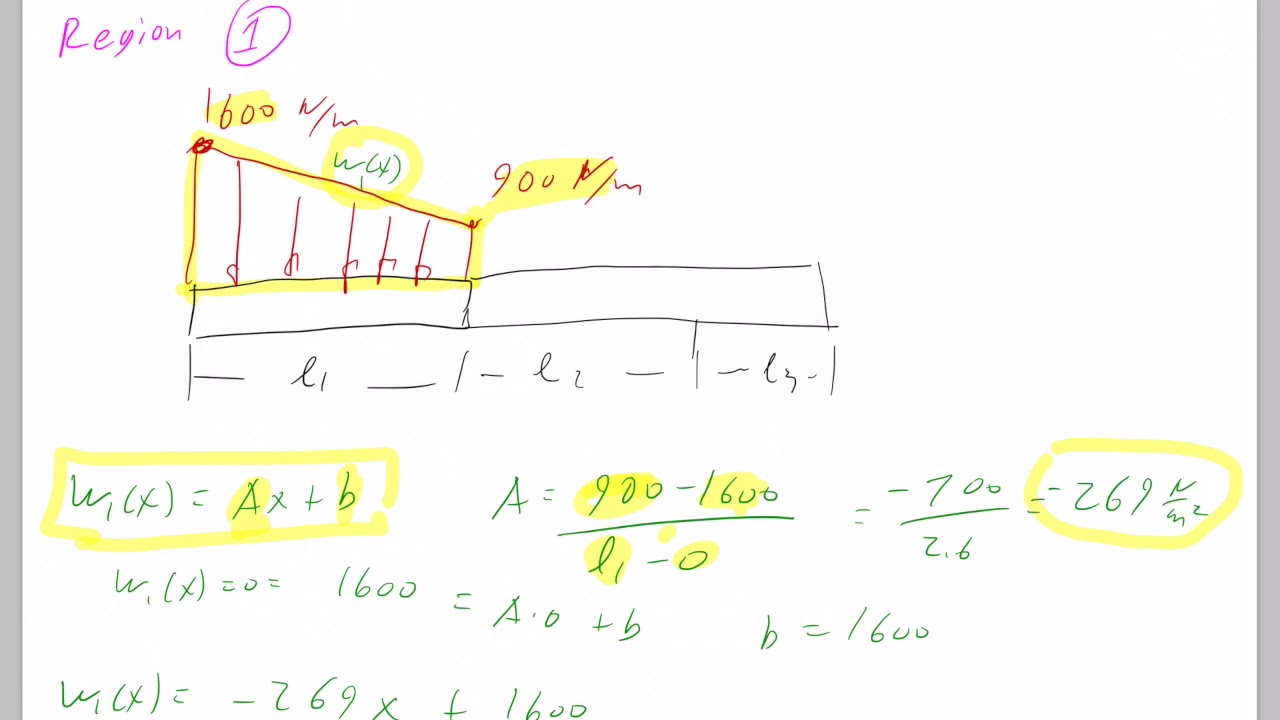 Region 1
1600 N/m
w₁(x)
900 N/m
l₁ l₂ l₃
w₁(x) = Ax + b
A = 900 - 1600 / l₁ - 0 = -700 / 2.6 = -269 N/m²
w₁(x)=0= 1600 = A·0 + b
b = 1600
w₁(x) = -269 x + 1600